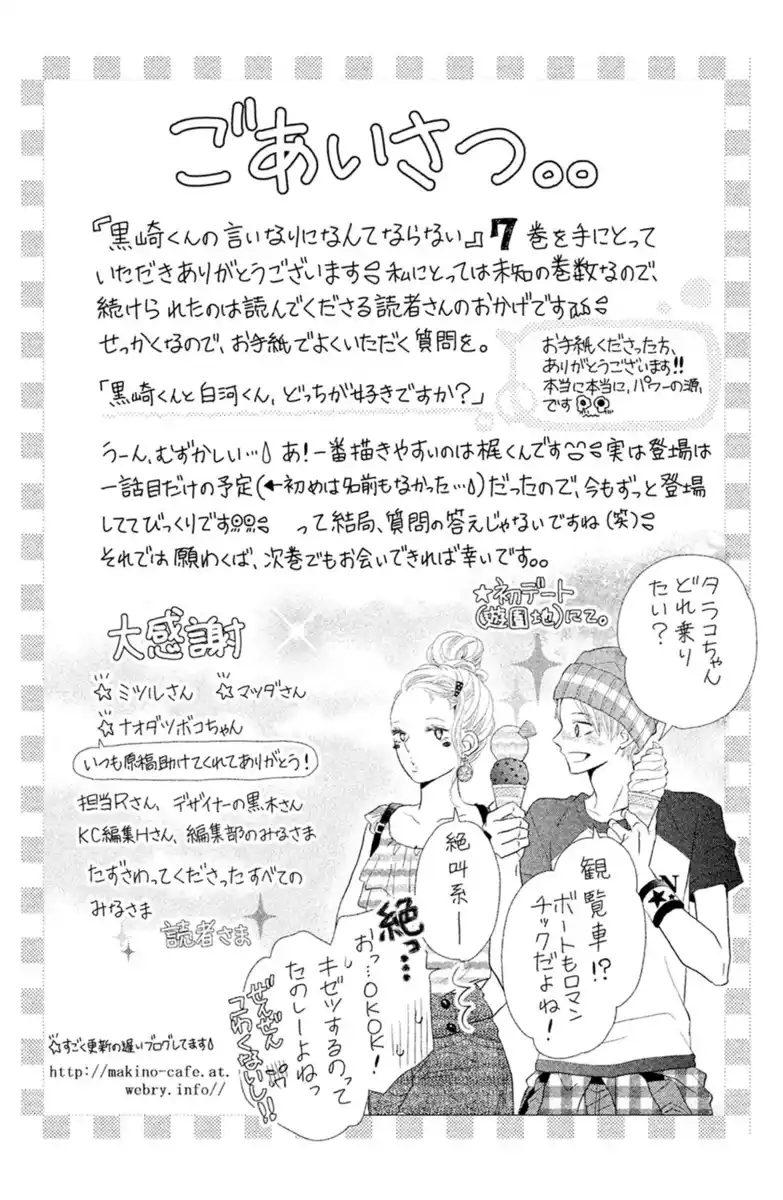 ごあいさつ。。
『黒崎くんの言いなりになんてならない』7巻を手にとって
いただきありがとうございます 私にとっては未知の巻数なので、
続けられたのは読んでくださる読者さんのおかげです
せっかくなので、お手紙でよくいただく質問を。
お手紙くださった方、
ありがとうございます!!
本当に本当に、パワーの源
です
「黒崎くんと白河くん、どっちが好きですか?」
うーん、むずかしい… あ!一番描きやすいのは梶くんです 実は登場は
一話目だけの予定(←初めは名前もなかった…)だったので、今もずっと登場
しててびっくりです って結局、質問の答えじゃないですね(笑)
それでは願わくば、次巻でもお会いできれば幸いです。。
★初デート
(遊園地)にて。
タラコちゃん
どれ乗り
たい?
絶叫系ー
観覧車!?
ボートもロマン
チックだよね!
絶っ…
おっ…OKOK!
キゼツするのって
たのしーよねっ
ぜんぜん
こわくないし!!
大感謝
☆ミツルさん ☆マツダさん
☆ナオダツボコちゃん
いつも原稿助けてくれてありがとう!
担当Rさん、デザイナーの黒木さん
KC編集Hさん、編集部のみなさま
たずさわってくださったすべての
みなさま
読者さま
☆すごく更新の遅いブログしてます
http://makino-cafe.at.
webry.info//